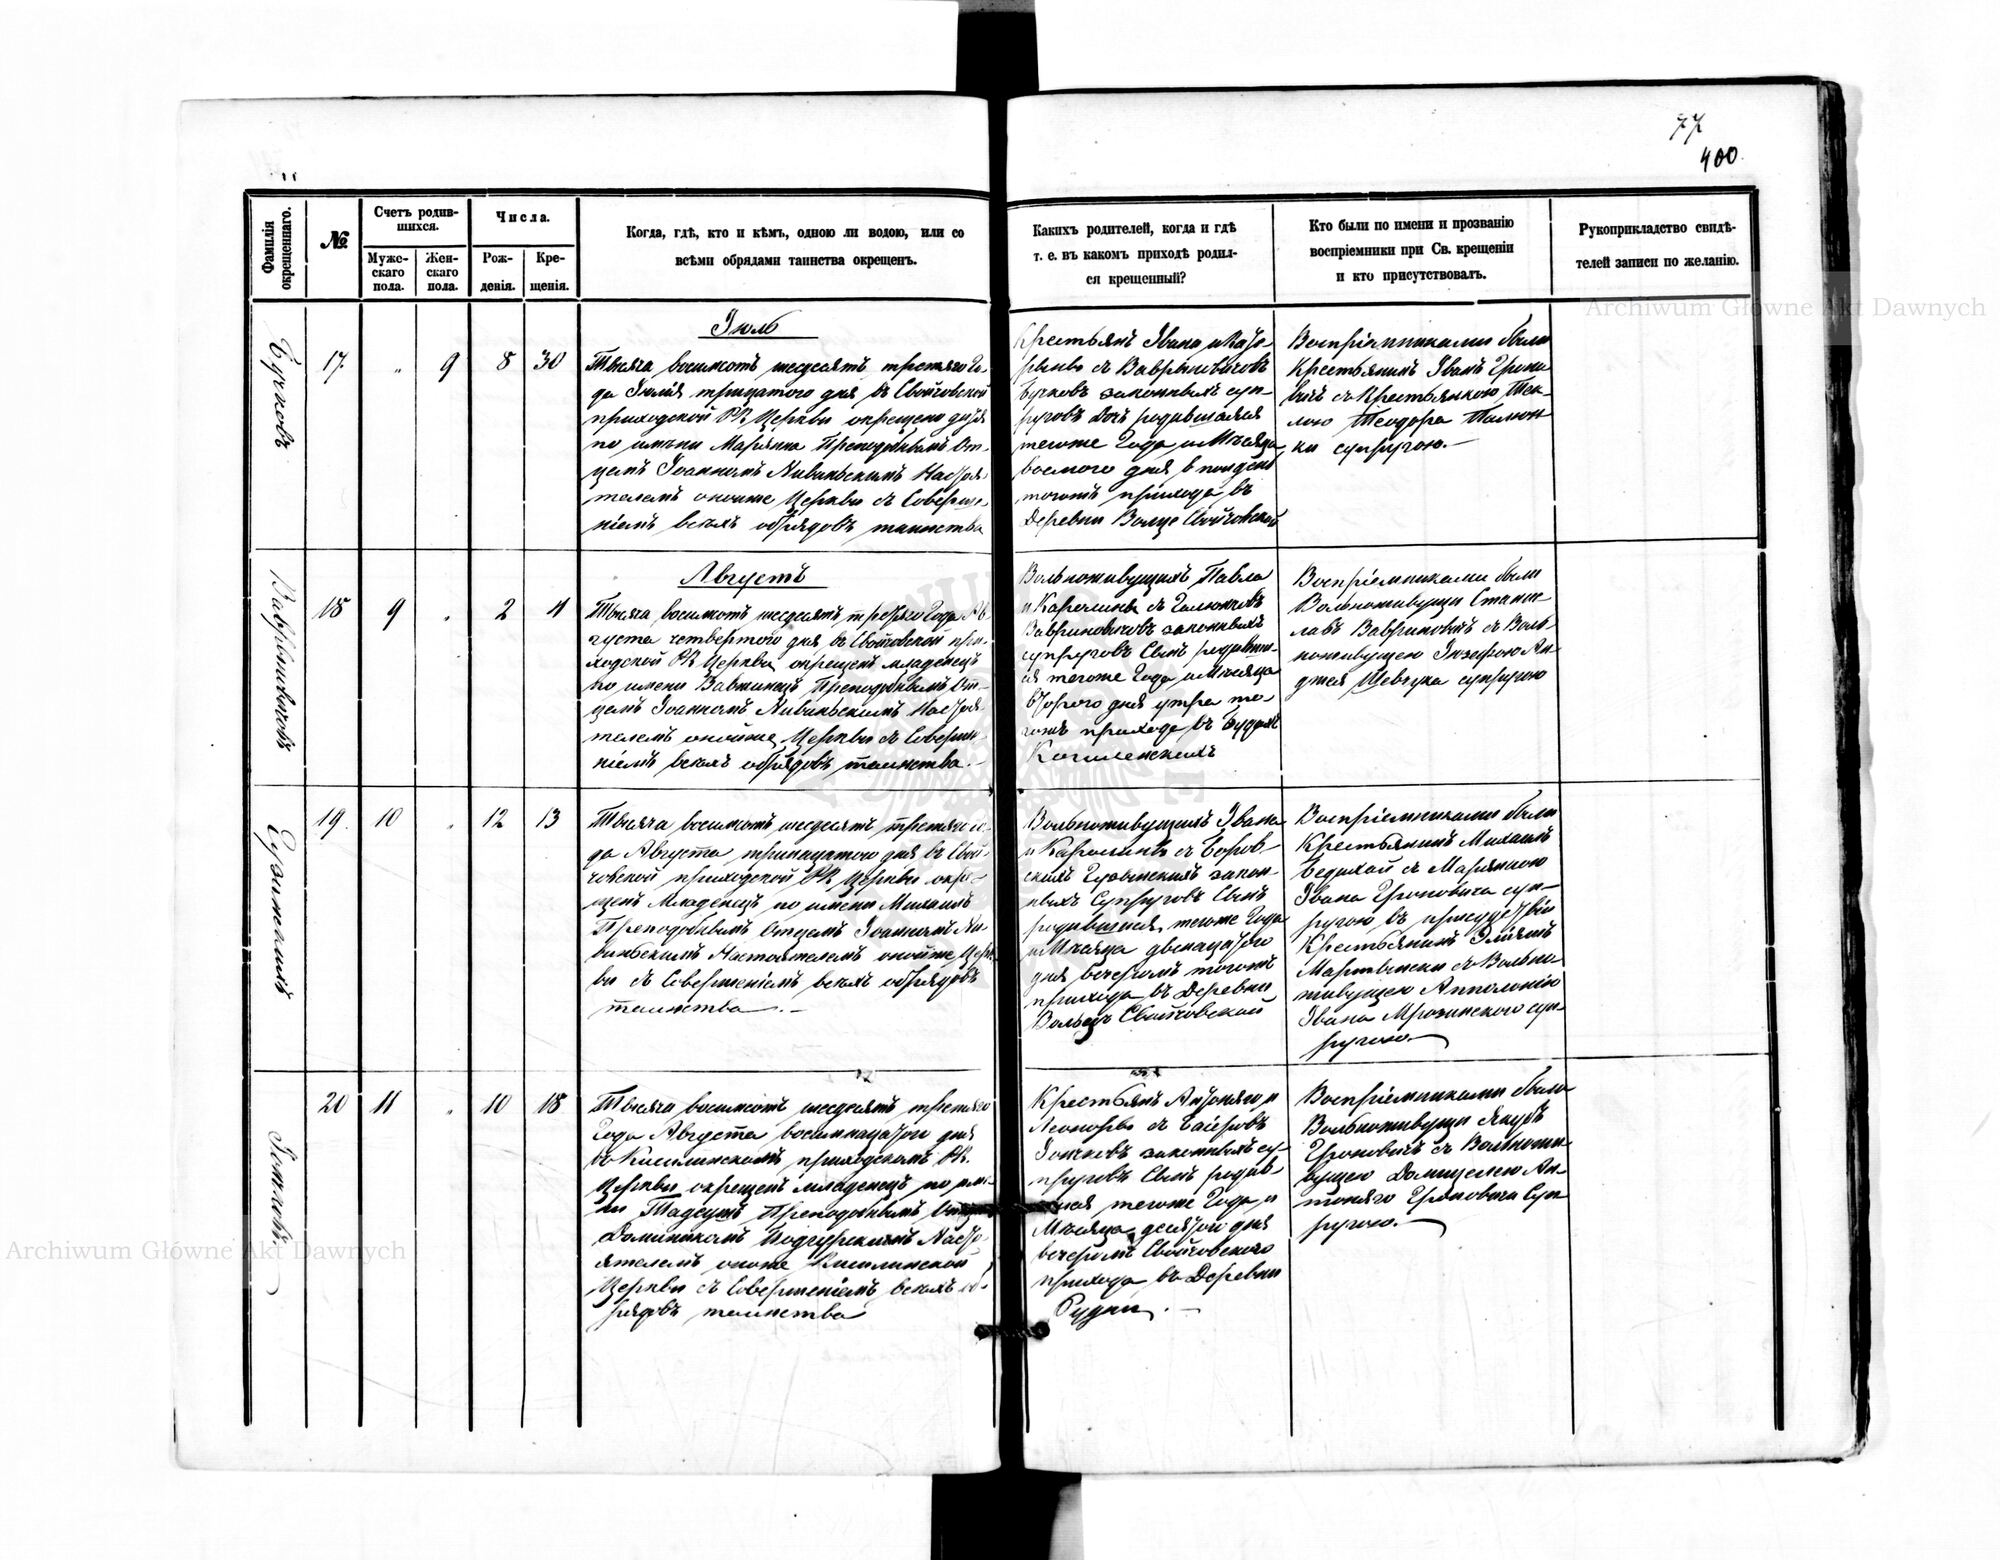 77
400.
Фамилія окрещеннаго.
№
Счетъ родив-
шихся.
Муже-
скаго
пола.
Жен-
скаго
пола.
Числа.
Рож-
денія.
Кре-
щенія.
Когда, гдѣ, кто и кѣмъ, одною ли водою, или со
всѣми обрядами таинства окрещенъ.
Какихъ родителей, когда и гдѣ
т. е. въ какомъ приходѣ родил-
ся крещенный?
Кто были по имени и прозванію
воспріемники при Св. крещеніи
и кто присутствовалъ.
Рукоприкладство свидѣ-
телей записи по желанію.
17.
"
9
8
30
Іюль
Тысяча восимсотъ шесдсятъ третяго Го-
да Іюлія трицатого дня въ Свойчовской
приходской РК Церквы окрещено дитя
по имѣни Маріяна Преподобнымъ От-
цемъ Іоанномъ Настоя-
телемъ оноиже Церквы съ Соверше-
ніемъ всехъ обрядовъ таинства
Крестьянъ Ивана и
съ Вавриневичовъ
законныхъ суп-
руговъ Дочь родившаяся
тогоже Года и Мѣсяца
восмого дня в
тогожъ прихода въ
Деревни Волце Свойчовской
Воспріемниками были
Крестьянинъ Іванъ
съ Крестьянкою Тек-
лею Теодора
супругою.—
18
9
"
2
4
Августъ
Тысяча восимсотъ шесдсятъ третяго Года Ав-
густа четвертого дня въ Свойчовской при-
ходской РК Церквы окрещенъ младенецъ
по имени Вавжинецъ Преподобнымъ От-
цемъ Іоанномъ Настоя-
телемъ оноиже Церквы съ Соверше-
ніемъ всехъ обрядовъ таинства.—
Вольноживущихъ Павла
и Каролины съ
Вавриновичовъ законныхъ
супруговъ Сынъ родивши-
ся тогоже Года и Мѣсяца
второго дня утра то-
гожъ прихода въ Будкахъ
Воспріемниками были
Вольноживущи Стани-
лавъ Вавриновичъ съ Воль-
ноживущею Іюзефою Ан-
джея Шевчука супругою
19.
10
"
12
13
Тысяча восимсотъ шесдсятъ третяго го-
да Августа тринацатого дня въ Свой-
човской приходской РК Церквы окре-
щенъ Младенецъ по имени Михаилъ
Преподобнымъ Отцемъ Іоанномъ
Настоятелемъ оноиже Церк-
вы съ Совершеніемъ всехъ обрядовъ
таинства.—
Вольноживущихъ Ивана
и Каролины съ Боров-
скихъ закон-
ныхъ Супруговъ Сынъ
родившися тогоже Года
и Мѣсяца двенацатого
дня вечеромъ тогожъ
прихода въ Деревни
Вольцъ Свойчовской
Воспріемниками были
Крестьянинъ Михаилъ
съ Маріянною
Ивана суп-
ругою въ присудствіи
Крестьянинъ
съ Вольно-
живущею Апполонію
Ивана Мрозинского суп-
ругою.—
20
11
"
10
18
Тысяча восимсотъ шесдсятъ третяго
Года Августа восимнацатого дня
въ Киселинскомъ приходскомъ РК.
Церквы окрещенъ младенецъ по име-
ни Тадеушъ Преподобнымъ Отцемъ
Доминикомъ Насто-
ятелемъ оноиже Киселинской
Церквы съ Совершеніемъ всехъ об-
рядовъ таинства
Крестьянъ Антоняго и
Леоноры съ
законныхъ су-
пруговъ Сынъ родив-
шися тогоже Года и
Мѣсяца десятого дня
вечеромъ Свойчовского
прихода въ Деревни
Рудни.—
Воспріемниками были
Вольноживущи Якубъ
съ Вольножи-
вущею Домицелею Ан-
тоняго Суп-
ругою.—
Archiwum Główne Akt Dawnych
Archiwum Główne Akt Dawnych